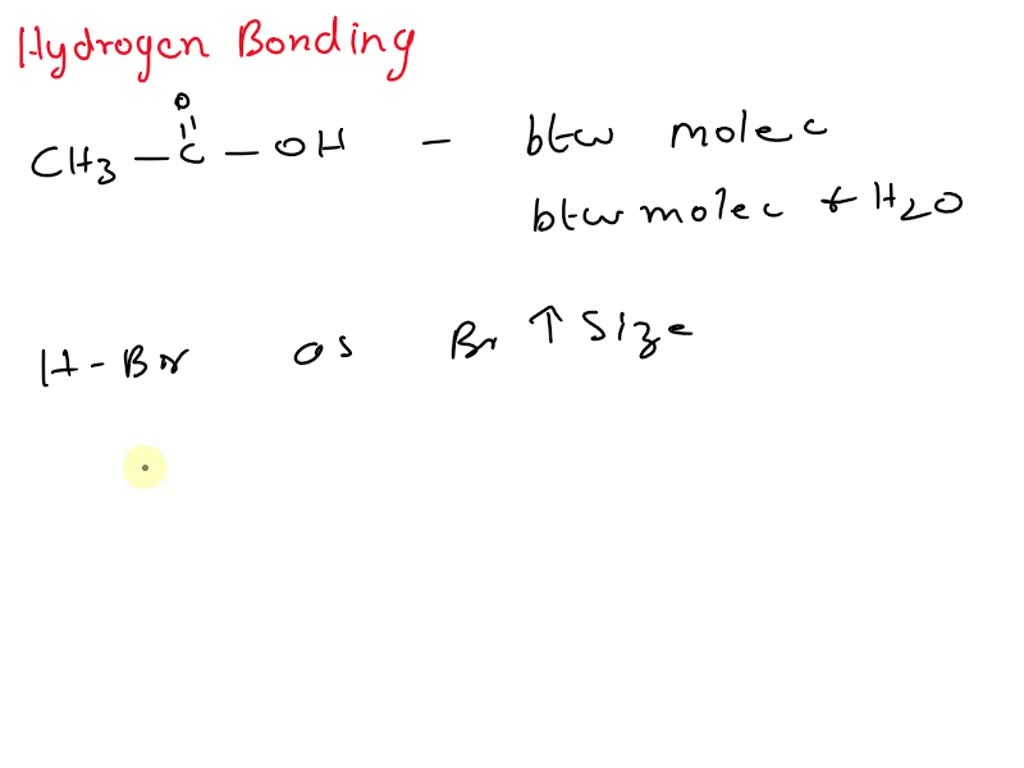 Hydrogen Bonding
O
CH3 - C - OH - btw molec
btw molec + H2O
H-Br as Br ↑ Size